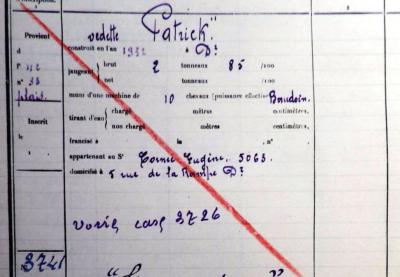 Provient
vedette "Patrick."
d construit en l'an 1932 à Dº
fº 112 jaugeant brut 2 tonneaux 85 /100
nº 33 net tonneaux /100
plais. muni d'une machine de 10 chevaux (puissance effective) Baudoin.
Inscrit tirant d'eau chargé mètres centimètres,
le non chargé mètres centimètres,
francisé à le , nº
appartenant au Sr Eugène. 5063
domicilié à 5 rue de la Rampe Dº
voir case 3726
Nº 3741